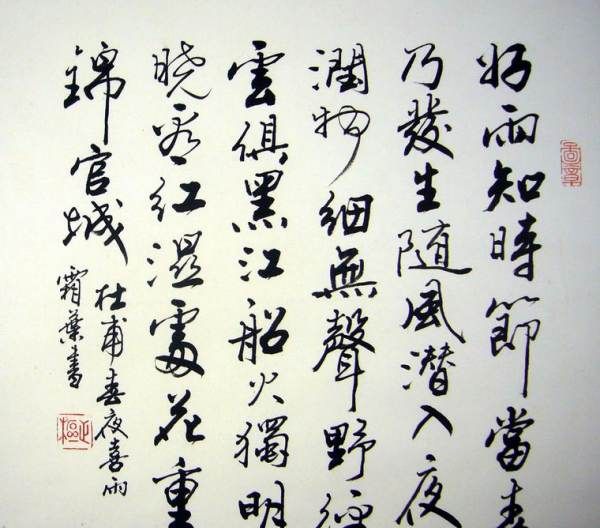 好雨知時節當春
乃發生随風潜入夜
潤物細無聲野徑
雲俱黑江船火獨明
曉看紅濕處花重
錦官城
杜甫春夜喜雨
霜葉書